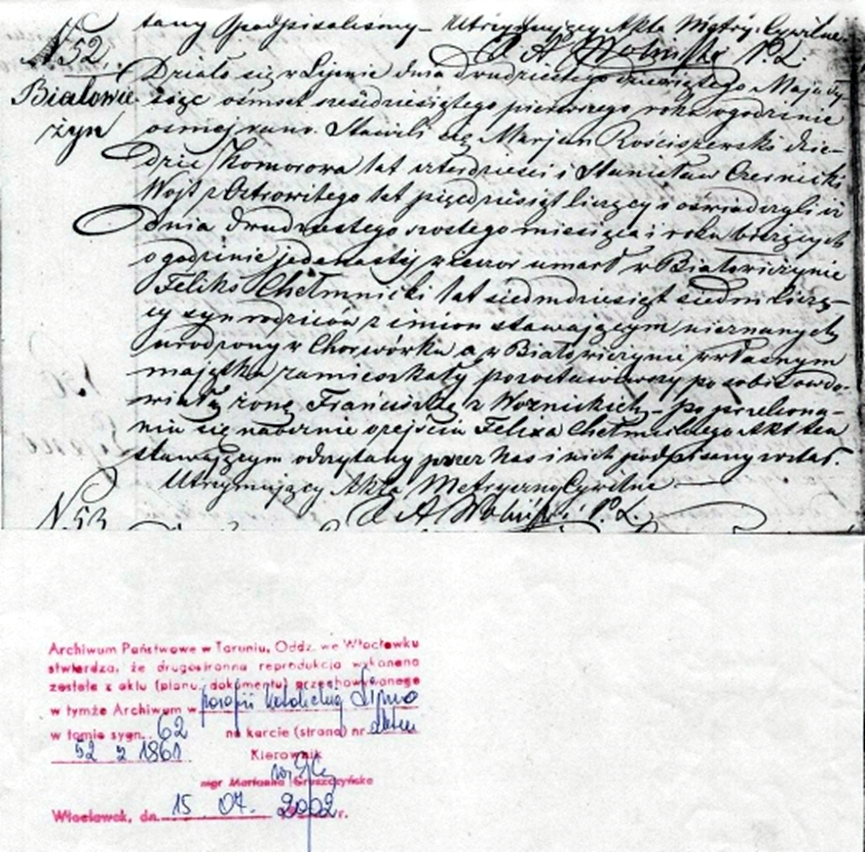 tany i podpisaliśmy – Utrzymujący Akta Metry: Cywilne
X. A. Wolniski P. L.
N. 52.
Białowie
żyn
Działo się w Lipnie dnia dwudziestego dziewiątego Maja ty-
siąc ośmset sześdziesiątego pierwszego roku o godzinie
osmej rano. Stawili się Marjan Rościszewski dzie-
dzic z Komorowa lat czterdzieści i Stanisław Czernicki
Wojt z Ostrowitego lat pięćdziesiąt liczący i oświadczyli iż
Dnia dwudziestego szostego miesiąca i roku bieżących
o godzinie jedenastej wieczor umarł w Białowieżynie
Feliks Chełmnicki lat siedmdziesiąt siedm licz-
cy syn rodziców z imion stawającym nieznanych
urodzony w Chorwórku a w Białowieżynie w własnym
majątku zamieszkały pozostawiwszy po sobie owdo-
wiałą żonę Franciszkę z Woznickich – po przekona-
niu się naocznie o zejściu Felixa Chełmickiego Akt ten
stawającym odczytany przez Nas i nich podpisany został.
Utrzymujący Akta Metryczno Cywilne
X. A. Wolniski P. L.
N. 53
Archiwum Państwowe w Toruniu, Oddz. we Włocławku
stwierdza, że drugostronna reprodukcja wykonana
została z aktu (planu, dokumentu) przechowywanego
w tymże Archiwum w parafii katolickiej Lipno
w tomie sygn. 62 na karcie (strona) nr aktu
52 z 1861
Kierownik
mgr Marianna Gruszczyńska
Włocławek, dn. 15 07. 2002 r.